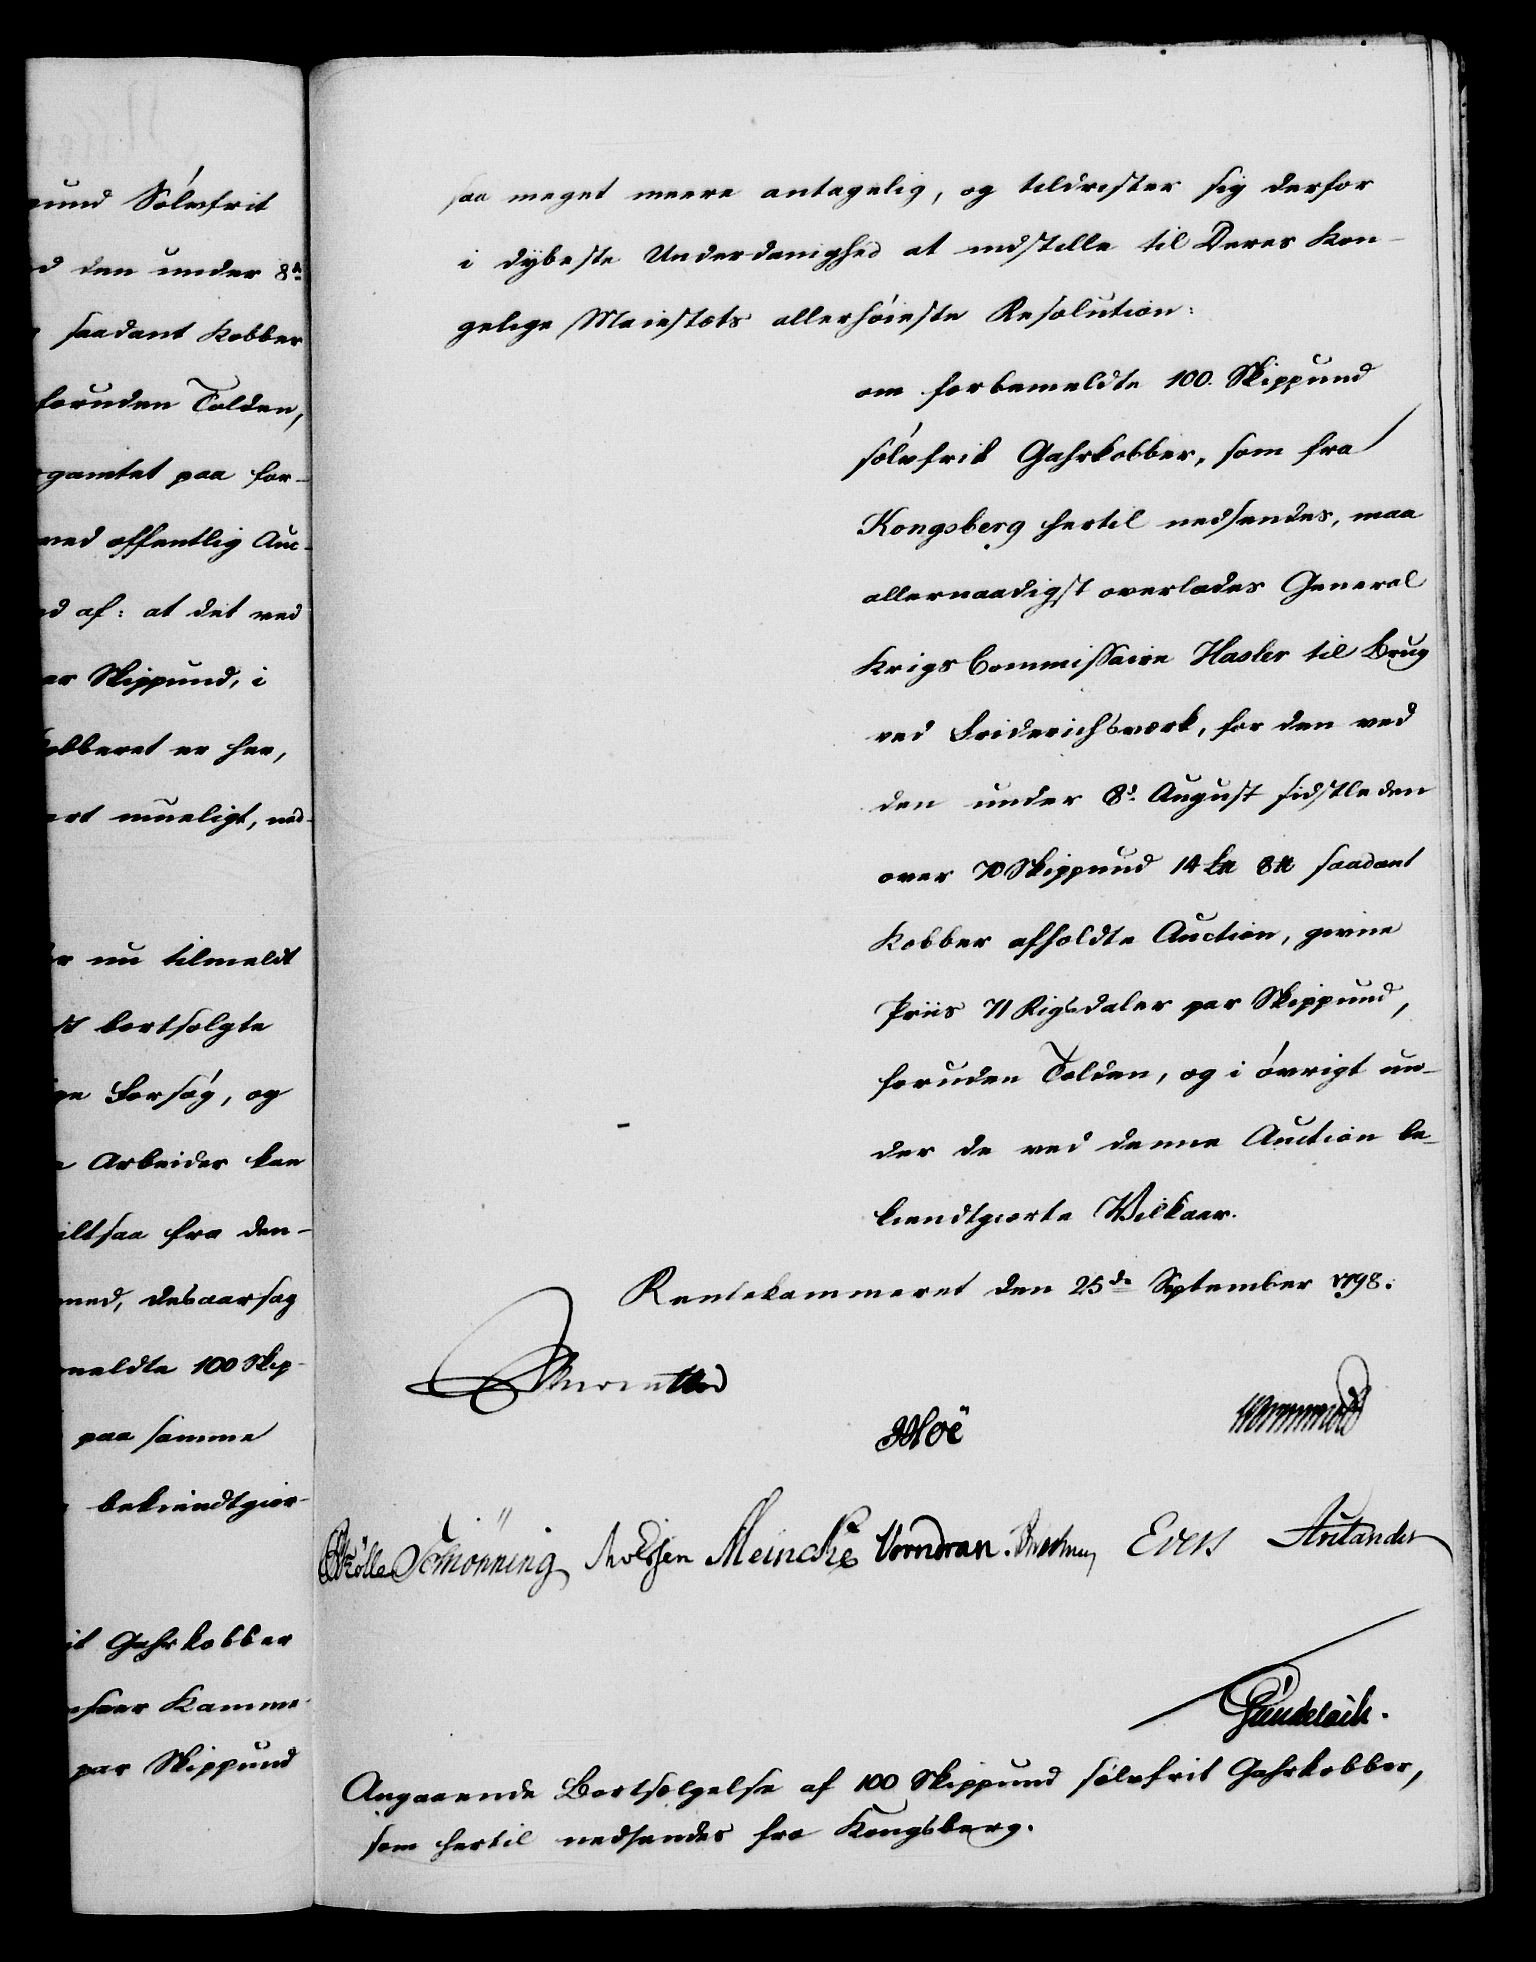 pund Sølvfrit
d den under 8de
saadant Kobber
foruden Tolden,
gamtet paa for-
ved offentlig Auc-
d af: at det ved
er Skippund, i
Kobberet er her,
art mueligt, ned-
er nu tilmeldt
bortsolgte
ge Forsøg, og
Arbeider kan
altsaa fra den-
med, desaarsag
meldte 100 Skip-
paa samme
bekiendtgior-
it Gahrkobber
Kamme-
par Skippund
saa meget meere antagelig, og tildrister sig derfor
i dybeste Underdanighed at indstille til Deres Kon-
gelige Maiestæts allerhøieste Resolution:
om forbemeldte 100. Skippund
sølvfrit Gahrkobber, som fra
Kongsberg hertil nedsendes, maa
allernaadigst overlades General
Krigs Commissaire Hasler til Brug
ved Friderichsværk, for den ved
den under 8d August sidstleden
over 70 Skippund 14 L℔ 8 ℔ saadant
Kobber afholdte Auction, givne
Priis 71 Rigsdaler par Skippund,
foruden Tolden, og i øvrigt un-
der de ved denne Auction be-
kiendtgiorte Vilkaar.
Rentekammeret den 25de September 1798.
Wormskiold
Schiønning Meincke Vorndran Evers
Angaaende Bortsælgelse af 100 Skippund sølvfrit Gahrkobber,
som hertil nedsendes fra Kongsberg.